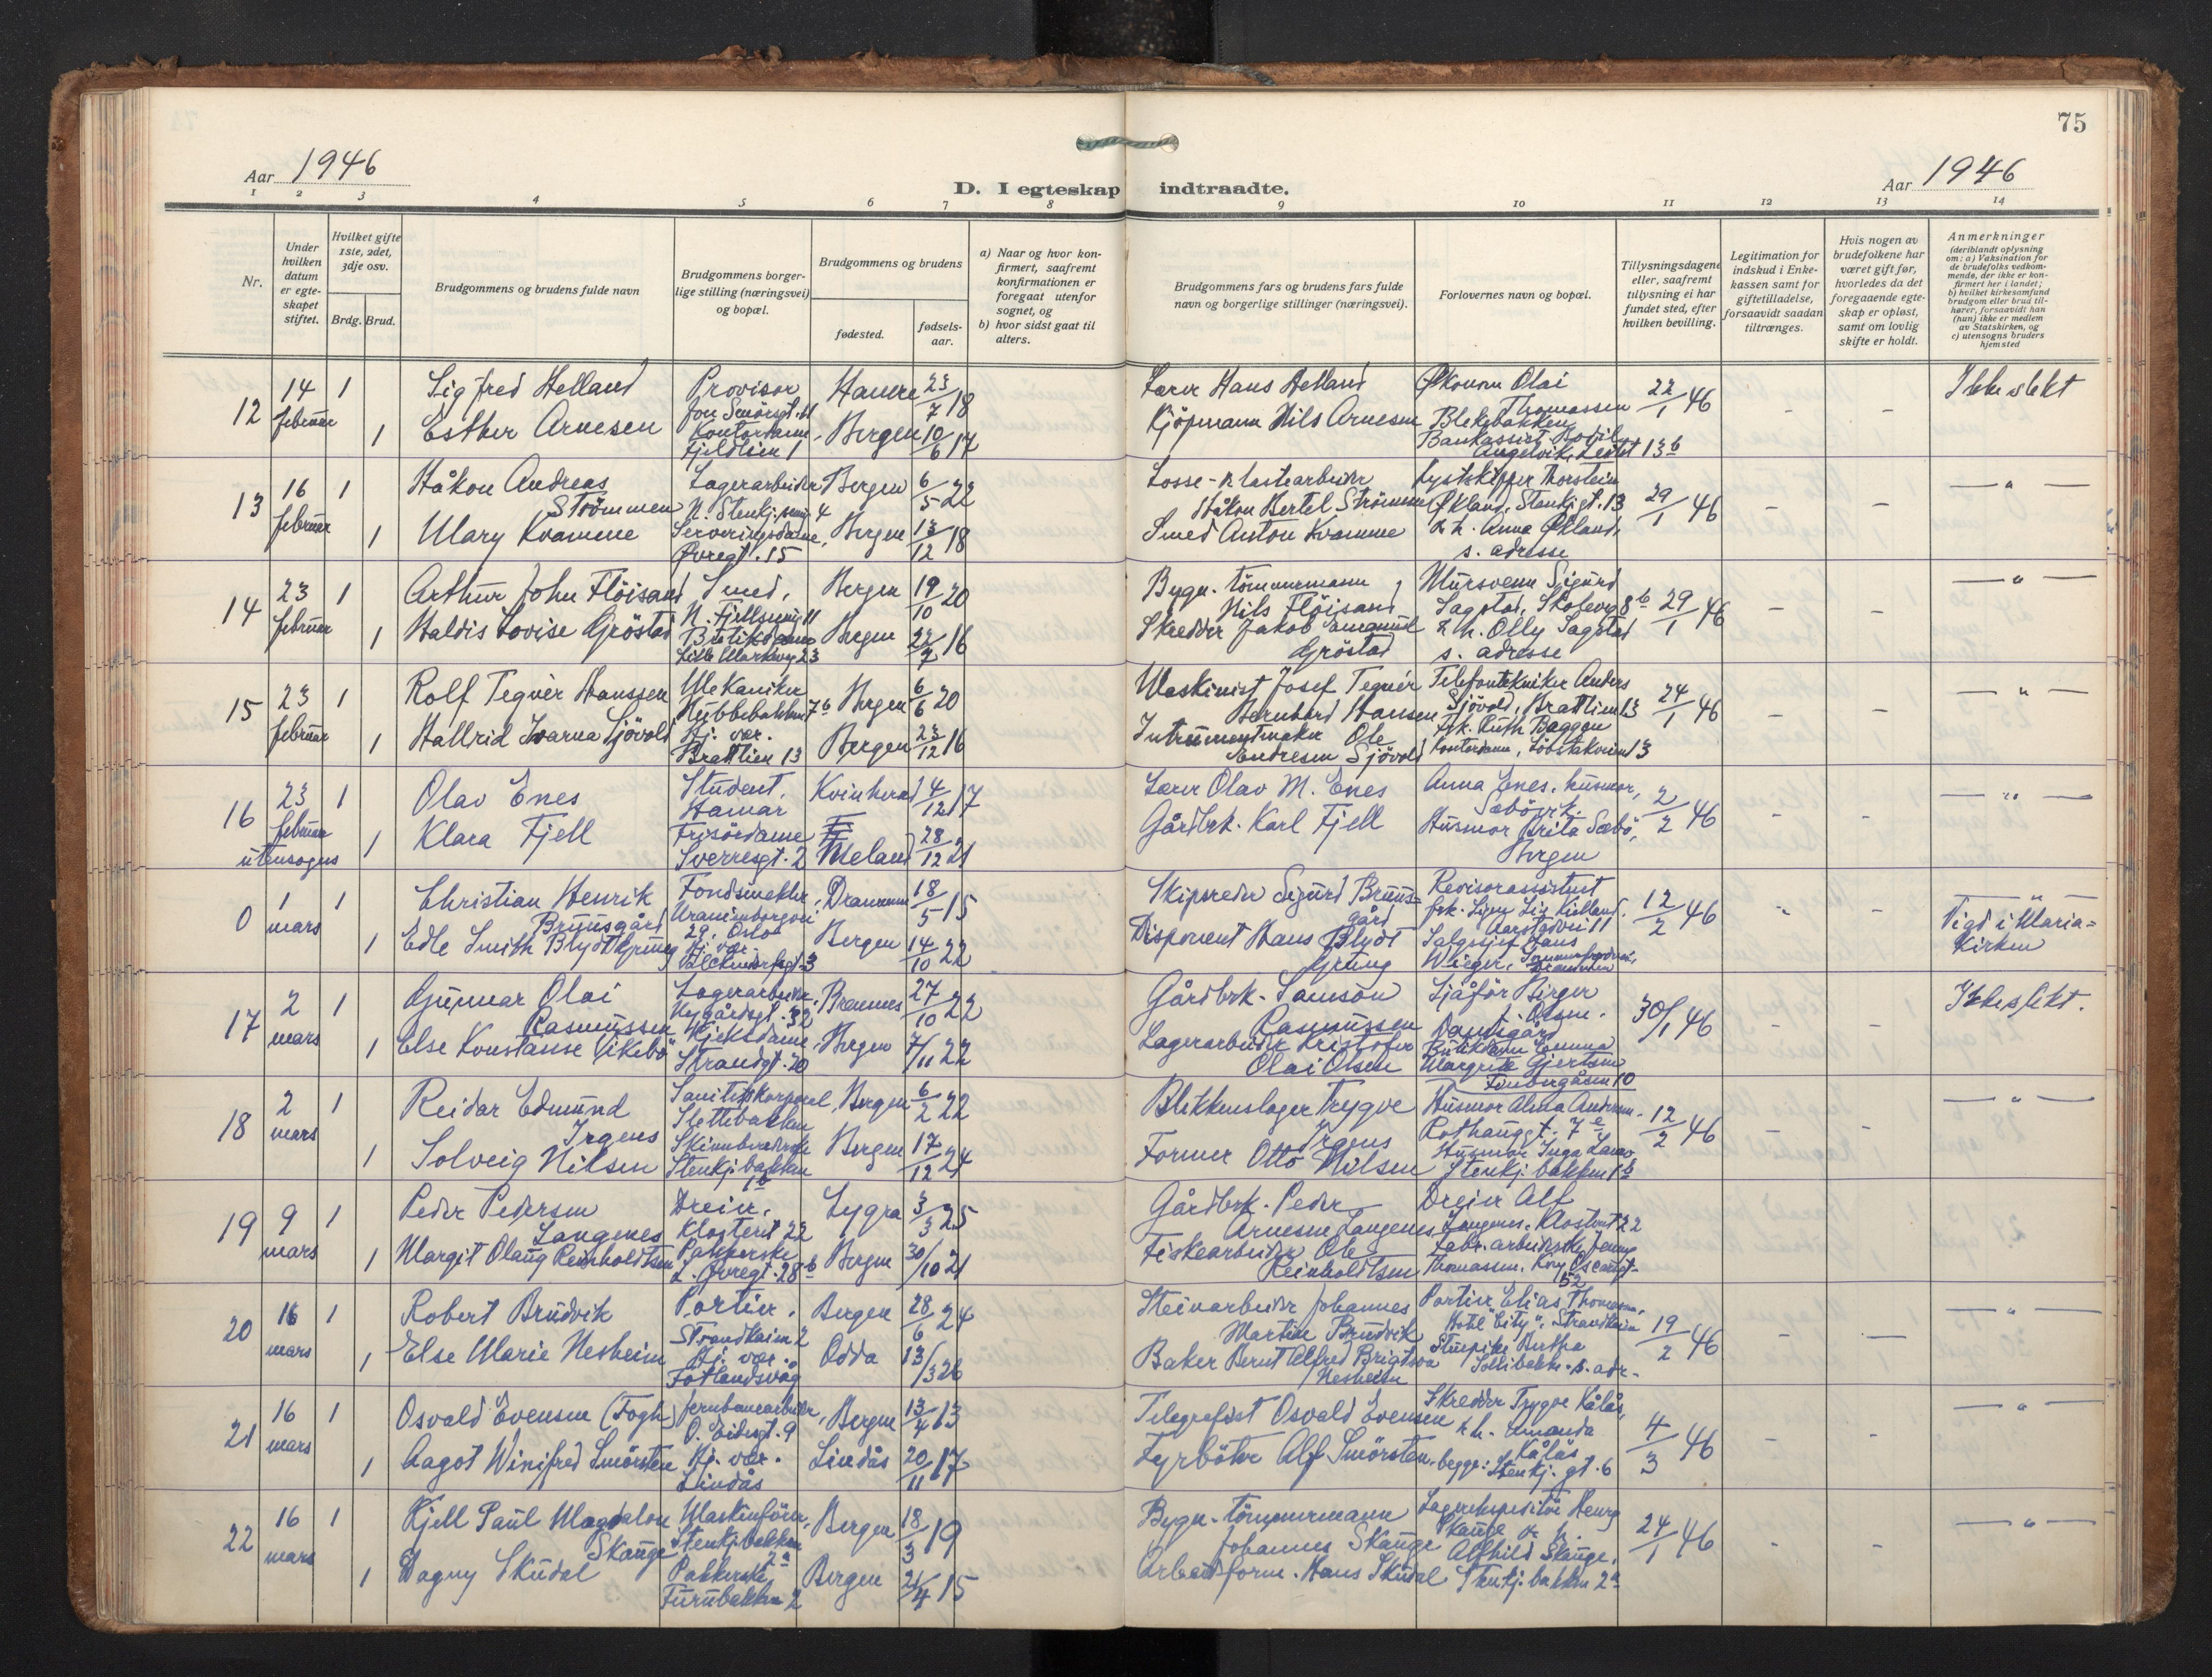 75
Aar 1946
D. I egteskap indtraadte.
Aar 1946
1 2 3 4 5 6 7 8 9 10 11 12 13 14
Nr.
Under hvilken datum er egteskapet stiftet.
Hvilket gifte 1ste, 2det, 3dje osv.
Brdg. Brud.
Brudgommens og brudens fulde navn
Brudgommens borgerlige stilling (næringsvei) og bopæl.
Brudgommens og brudens
fødested.
fødselsaar.
a) Naar og hvor konfirmert, saafremt konfirmationen er foregaat utenfor sognet, og
b) hvor sidst gaat til alters.
Brudgommens fars og brudens fars fulde navn og borgerlige stillinger (næringsvei).
Forlovernes navn og bopæl.
Tillysningsdagene eller, saafremt tillysning ei har fundet sted, efter hvilken bevilling.
Legitimation for indskud i Enkekassen samt for giftetilladelse, forsaavidt saadan tiltrænges.
Hvis nogen av brudefolkene har været gift før, hvorledes da det foregaaende egteskap er opløst, samt om lovlig skifte er holdt.
Anmerkninger
(deriblandt oplysning om: a) Vaksination for de brudefolks vedkommende, der ikke er konfirmert her i landet; b) hvilket kirkesamfund brudgom eller brud tilhører, forsaavidt han (hun) ikke er medlem av Statskirken, og c) utensogns bruders hjemsted
12 14 februar 1 Sigfred Helland Provisor 23/7 18 Lærer Hans Helland Økonom Olai Thomassen 22/1 46 - - Ikke slekt
1 Esther Arnesen Kontordame, Fjeldlien 1 Bergen 10/6 17 Kjöpmann Nils Arnesen Blekebakken
13 16 februar 1 Håkon Andreas Strömmen Lagerarbeider N. Stenkj.smug 4 Bergen 6/5 22 Losse- & lastearbeider Håkon Bertel Strömmen Thorstein Økland, Stenkjgt. 13 29/1 46 - - - " -
1 Mary Kvamme Serveringsdame, Øvregt. 15 Bergen 13/12 18 Smed Anton Kvamme & h. Anna Økland, s. adresse
14 23 februar 1 Arthur John Flöisand Smed, N. Fjellsmug 11 Bergen 19/10 20 Bygn. tömmermann Nils Flöisand Mursvenn Sigurd Sagstad, Skolevg 8b 29/1 46 - - - " -
1 Haldis Lovise Gröstad Butikdame Lille Markevg 23 Bergen 22/7 16 Skredder Jakob Emanuel Gröstad & h. Olly Sagstad s. adresse
15 23 februar 1 Rolf Tegnèr Hanssen Mekaniker Nubbebakken 7b Bergen 6/6 20 Maskinist Josef Tegnér Bernhard Hansen Telefontekniker Anders Sjövold, Brattlien 13 24/1 46 - - - " -
1 Hallrid Ivarna Sjövold Hj. vær. Brattlien 13 Bergen 23/12 16 Intrumentmaker Ole Andresen Sjövold Frk. Ruth Baggen Kontordame,
16 23 februar utensogns 1 Olav Enes Student, Hamar Kvinherad 4/12 17 Lærer Olav M. Enes Anna Enes, husmor, Sæbövik 2/2 46 - - - " -
1 Klara Fjell Frisördame Sverresgt. 2 Meland 28/12 21 Gårdbrk. Karl Fjell Husmor Brita Sæbö, Bergen
0 1 mars 1 Christian Henrik Bruusgård Fondsmekler, Uranienborgvei 29, Oslo Drammen 18/5 15 Skipsreder Sigurd Bruusgård Revisorassistent 12/2 46 - - Viad i Mariakirken
1 Edle Smith Blydt Grung Hj. vær. Bergen 14/10 22 Disponent Hans Blydt Grung Salgssjef Hans Wieger,
17 2 mars 1 Gunnar Olai Rasmussen Lagerarbeider, Nygårdsgt. 32 Bremnes 27/10 22 Gårdbrk. Samson Rasmussen Sjåför Birger Olsen, 30/1 46 - - Ikke slekt.
1 Else Konstanse Vikebö Kjeksdame, Strandgt. 20 Bergen 7/11 22 Lagerarbeider Kristofer Olai Olsen Butikdame Emma Margrete Gjertsen
18 2 mars 1 Reidar Edmund Irgens Sanitetskorporal, Slettebakken Bergen 6/2 22 Blikkenslager Trygve Irgens Husmor Alma Andersen Rothaugt. 7e 12/2 46 - - - " -
1 Solveig Nilsen Stenkj.bakken 1b Bergen 17/12 24 Former Otto Nilsen Husmor Inga Stenkj. bakken 1b
19 9 mars 1 Peder Pedersen Langenes Dreier, Klosteret 22 Lygra 3/3 25 Gårdbrk. Peder Arnesen Langenes Dreier Alf Langenes, Klosteret 22
1 Margit Olaug Reinholdtsen Pakkerske L. Øvregt. 28b Bergen 30/10 21 Fiskearbeider Ole Reinholdtsen Fabr. arbeiderske Jenny Thomassen, Kong Oscarsgt. 52
20 16 mars 1 Robert Brudvik Portier, Strandkaien 2 Bergen 28/6 24 Steinarbeider Johannes Martin Brudvik Portier Elias Thomassen, Hotel "City", Strandkaien 19/2 46 - - - " -
1 Else Marie Nesheim Hj. vær. Fotlandsvåg Odda 13/3 26 Baker Bernt Alfred Brigtson Nesheim Stuepike Bertha
21 16 mars 1 Osvald Evensen (Fogh) Jernbanearbeider, O. Eidesgt. 9 Bergen 13/4 13 Telegrafist Osvald Evensen Skredder Trygve Kålås, 4/3 46 - - - " -
1 Aagot Winifred Smörsten Hj. vær. Lindås Lindås 20/11 17 Fyrböter Alf Smörsten & h. Amanda Kålås begge: Stenkj. gt. 6
22 16 mars 1 Kjell Paul Magdalon Skauge Maskinförer, Stenkj.bakken 2a Bergen 18/3 19 Bygn. tömmermann Johannes Skauge Lagerekspeditör Henry Skauge & h. 24/1 46 - - - " -
1 Dagny Skudal Pakkerske, Furubakken 2 Bergen 21/4 15 Arbeidsform. Hans Skudal Alfhild Skauge, Stenkj. bakken 2a